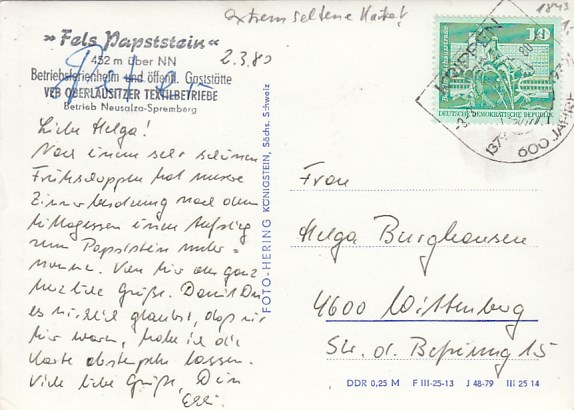 extrem seltene Karte!
1843
1.-
»Fels Papststein«
452 m über NN
Betriebsferienheim und öffentl. Gaststätte
VEB OBERLAUSITZER TEXTILBETRIEBE
Betrieb Neusalza-Spremberg
2.3.80
Liebe Helga!
Nach einem sehr schönen
Frühschoppen hat unsere
Zimmerbesatzung nach dem
Mittagessen einen Aufstieg
zum Papststein unter=
nommen. Von hier oben ganz
herzliche Grüße. Damit Du
es wirklich glaubst, daß wir
hier waren, habe ich die
Karte abstempeln lassen.
Viele liebe Grüße, Dein
Elli.
FOTO-HERING KÖNIGSTEIN, Sächs. Schweiz
10
DEUTSCHE DEMOKRATISCHE REPUBLIK
KRIPPEN
600 JAHRE
Frau
Helga Burghausen
4600 Wittenberg
Str. d. Befreiung 15
DDR 0,25 M F III-25-13 J 48-79 III 25 14